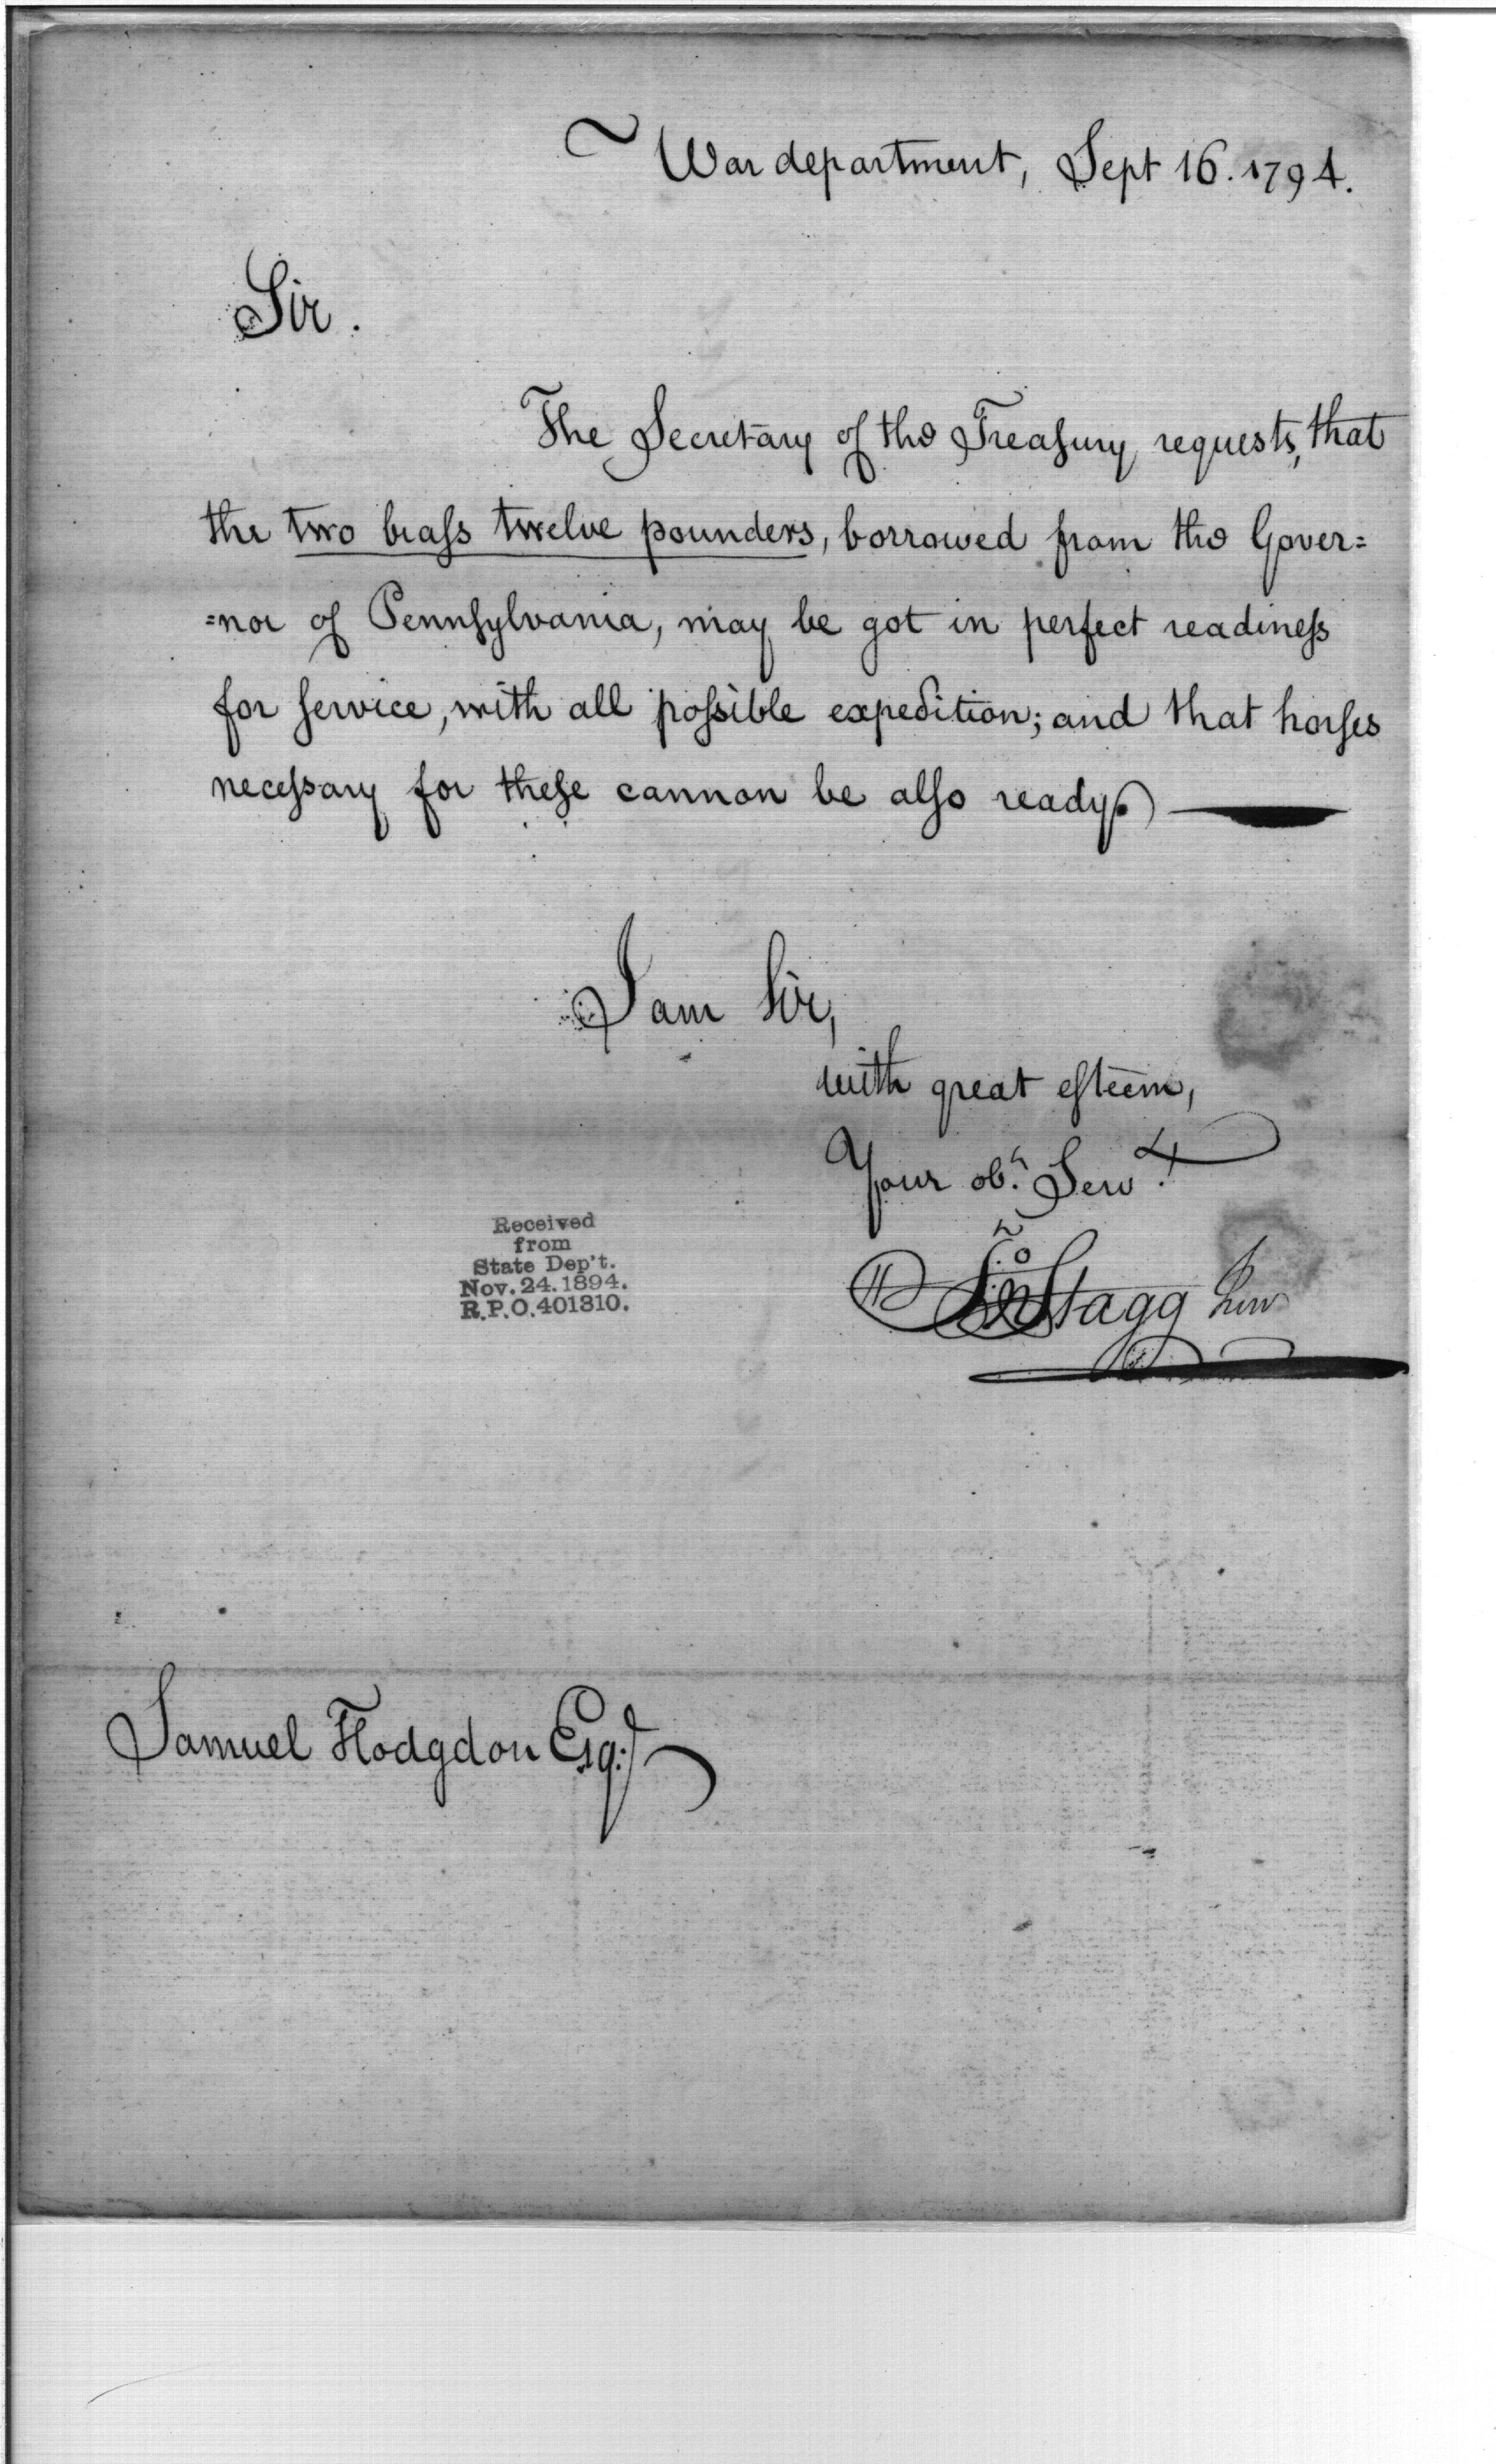 War department, Sept 16. 1794.
Sir.
The Secretary of the Treaſury requests, that
the two braſs twelve pounders, borrowed from the Gover=
=nor of Pennſylvania, may be got in perfect readineſs
for ſervice, with all poſsible expedition; and that horſes
neceſsary for theſe cannon be alſo ready.
I am Sir,
with great eſteem,
Your obt. Servt.
Jno Stagg Junr
Received
from
State Dep't.
Nov. 24. 1894.
R.P.O. 401310.
Samuel Hodgdon Esqr.